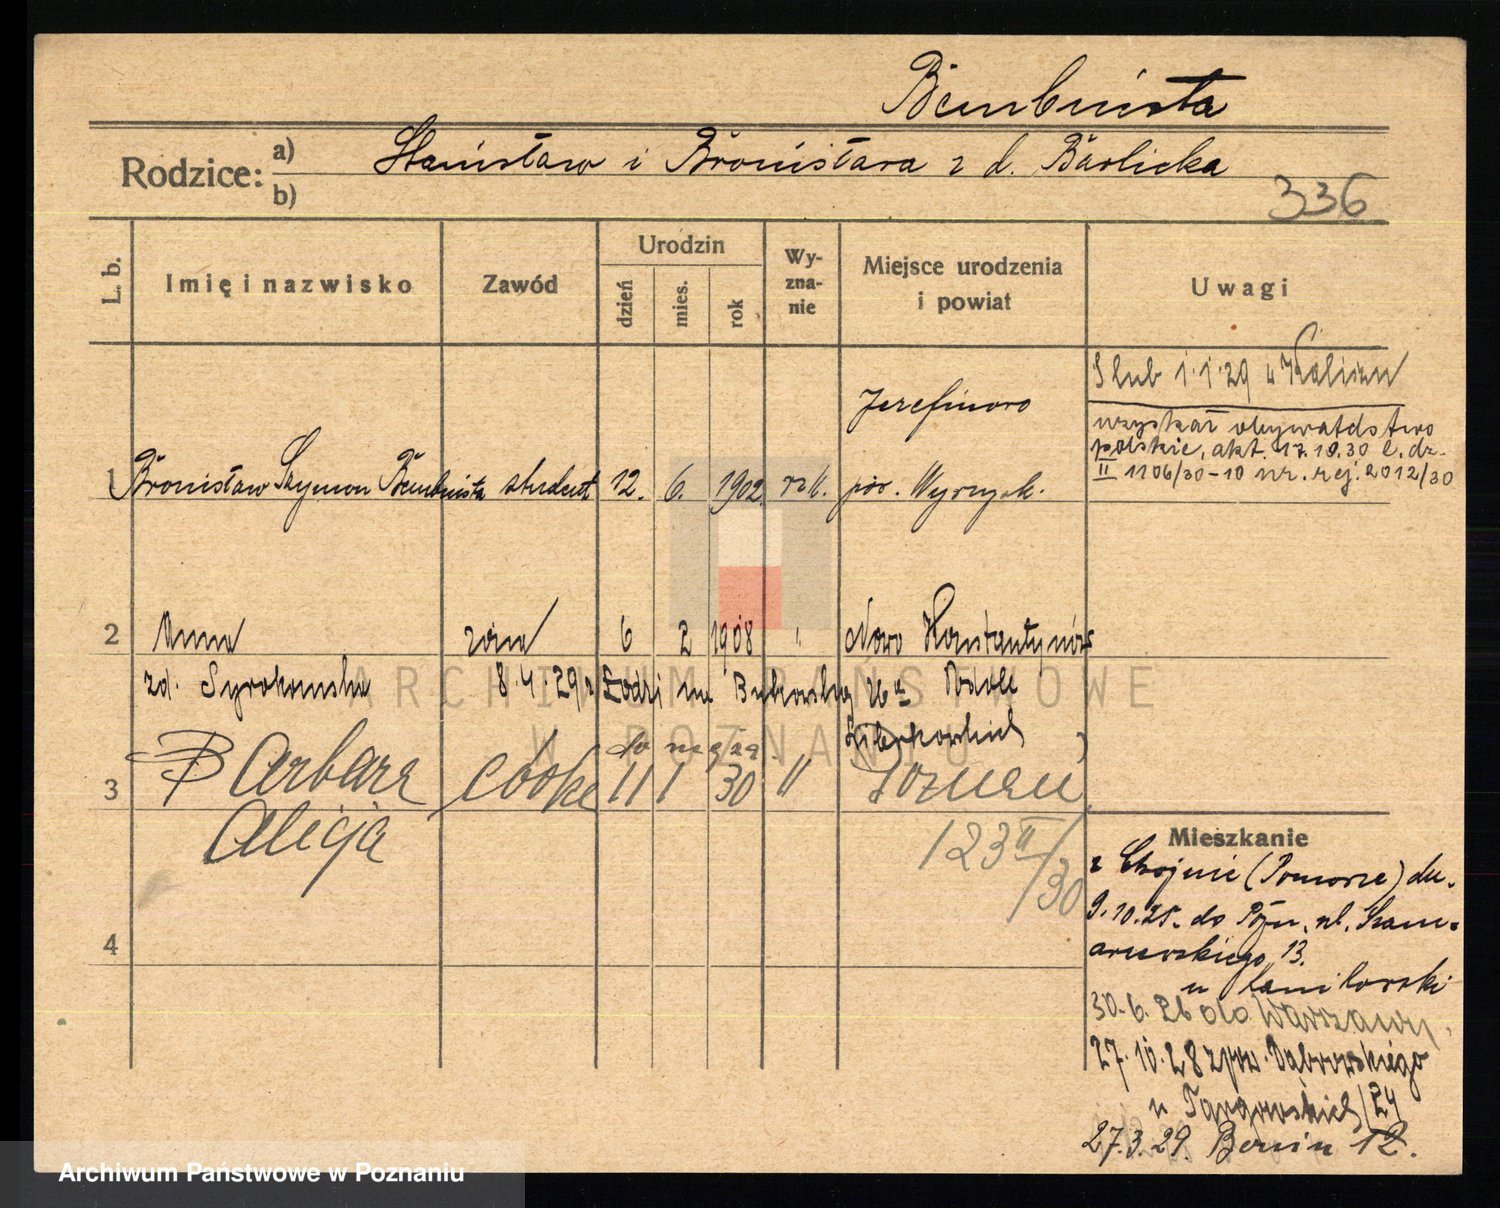 Bembnista
Rodzice: a) Stanisław i Bronisława z d. Barlicka
b)
336
L. b.
Imię i nazwisko
Zawód
Urodzin
dzień
mies.
rok
Wy-
zna-
nie
Miejsce urodzenia
i powiat
Uwagi
Slub 1.1.29 w Kaliszu
uzyskał obywatelstwo
polskie, akt. 17.10.30 l. dz.
II 1106/30-10 nr. rej. 2012/30
Józefinowo
1 Bronisław Szymon Bembnista student 12. 6. 1902. rz k. pow. Wyrzysk.
2 Anna żona 6 2 1908 " Nowo Konstantynów
zd. Syrokomska 8.4.29 z Łodzi Podole
do męża
3 Barbara córka 11 1 30 " Poznań
Alicja
123 II/30
4
Mieszkanie
z Chojnic (Pomorze) dn.
9.10.25. do Pozn. ul. Szam-
arzewskiego 13.
u
30.6.26 do Warszawy
27.10.28 z pow. Dąbrowskiego
u 24
27.3.29. 12.
ARCHIWUM PAŃSTWOWE
W POZNANIU
Archiwum Państwowe w Poznaniu